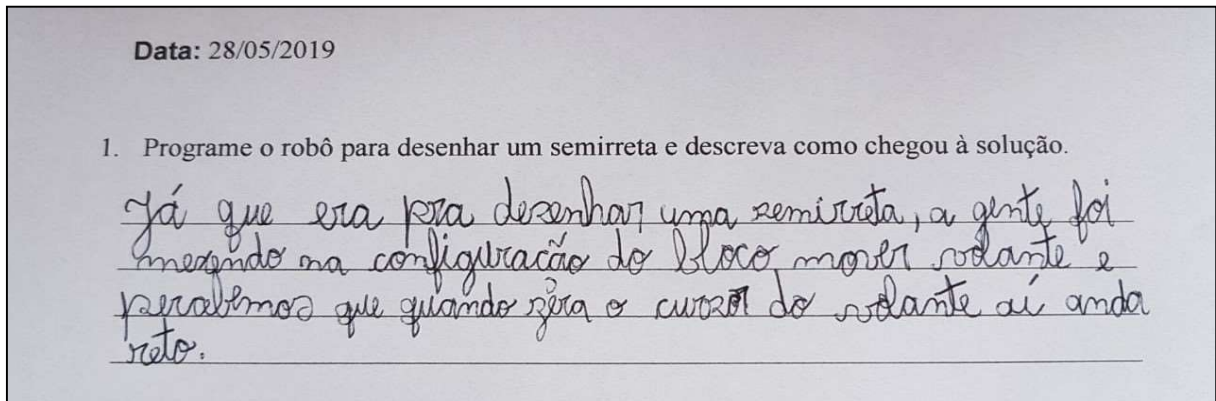 Data: 28/05/2019
1. Programe o robô para desenhar um semirreta e descreva como chegou à solução.
Já que era pra desenhar uma semirreta, a gente foi
mexendo na configuração do bloco mover rodante e
percebemos que quando zera o cursor do rodante aí anda
reto.